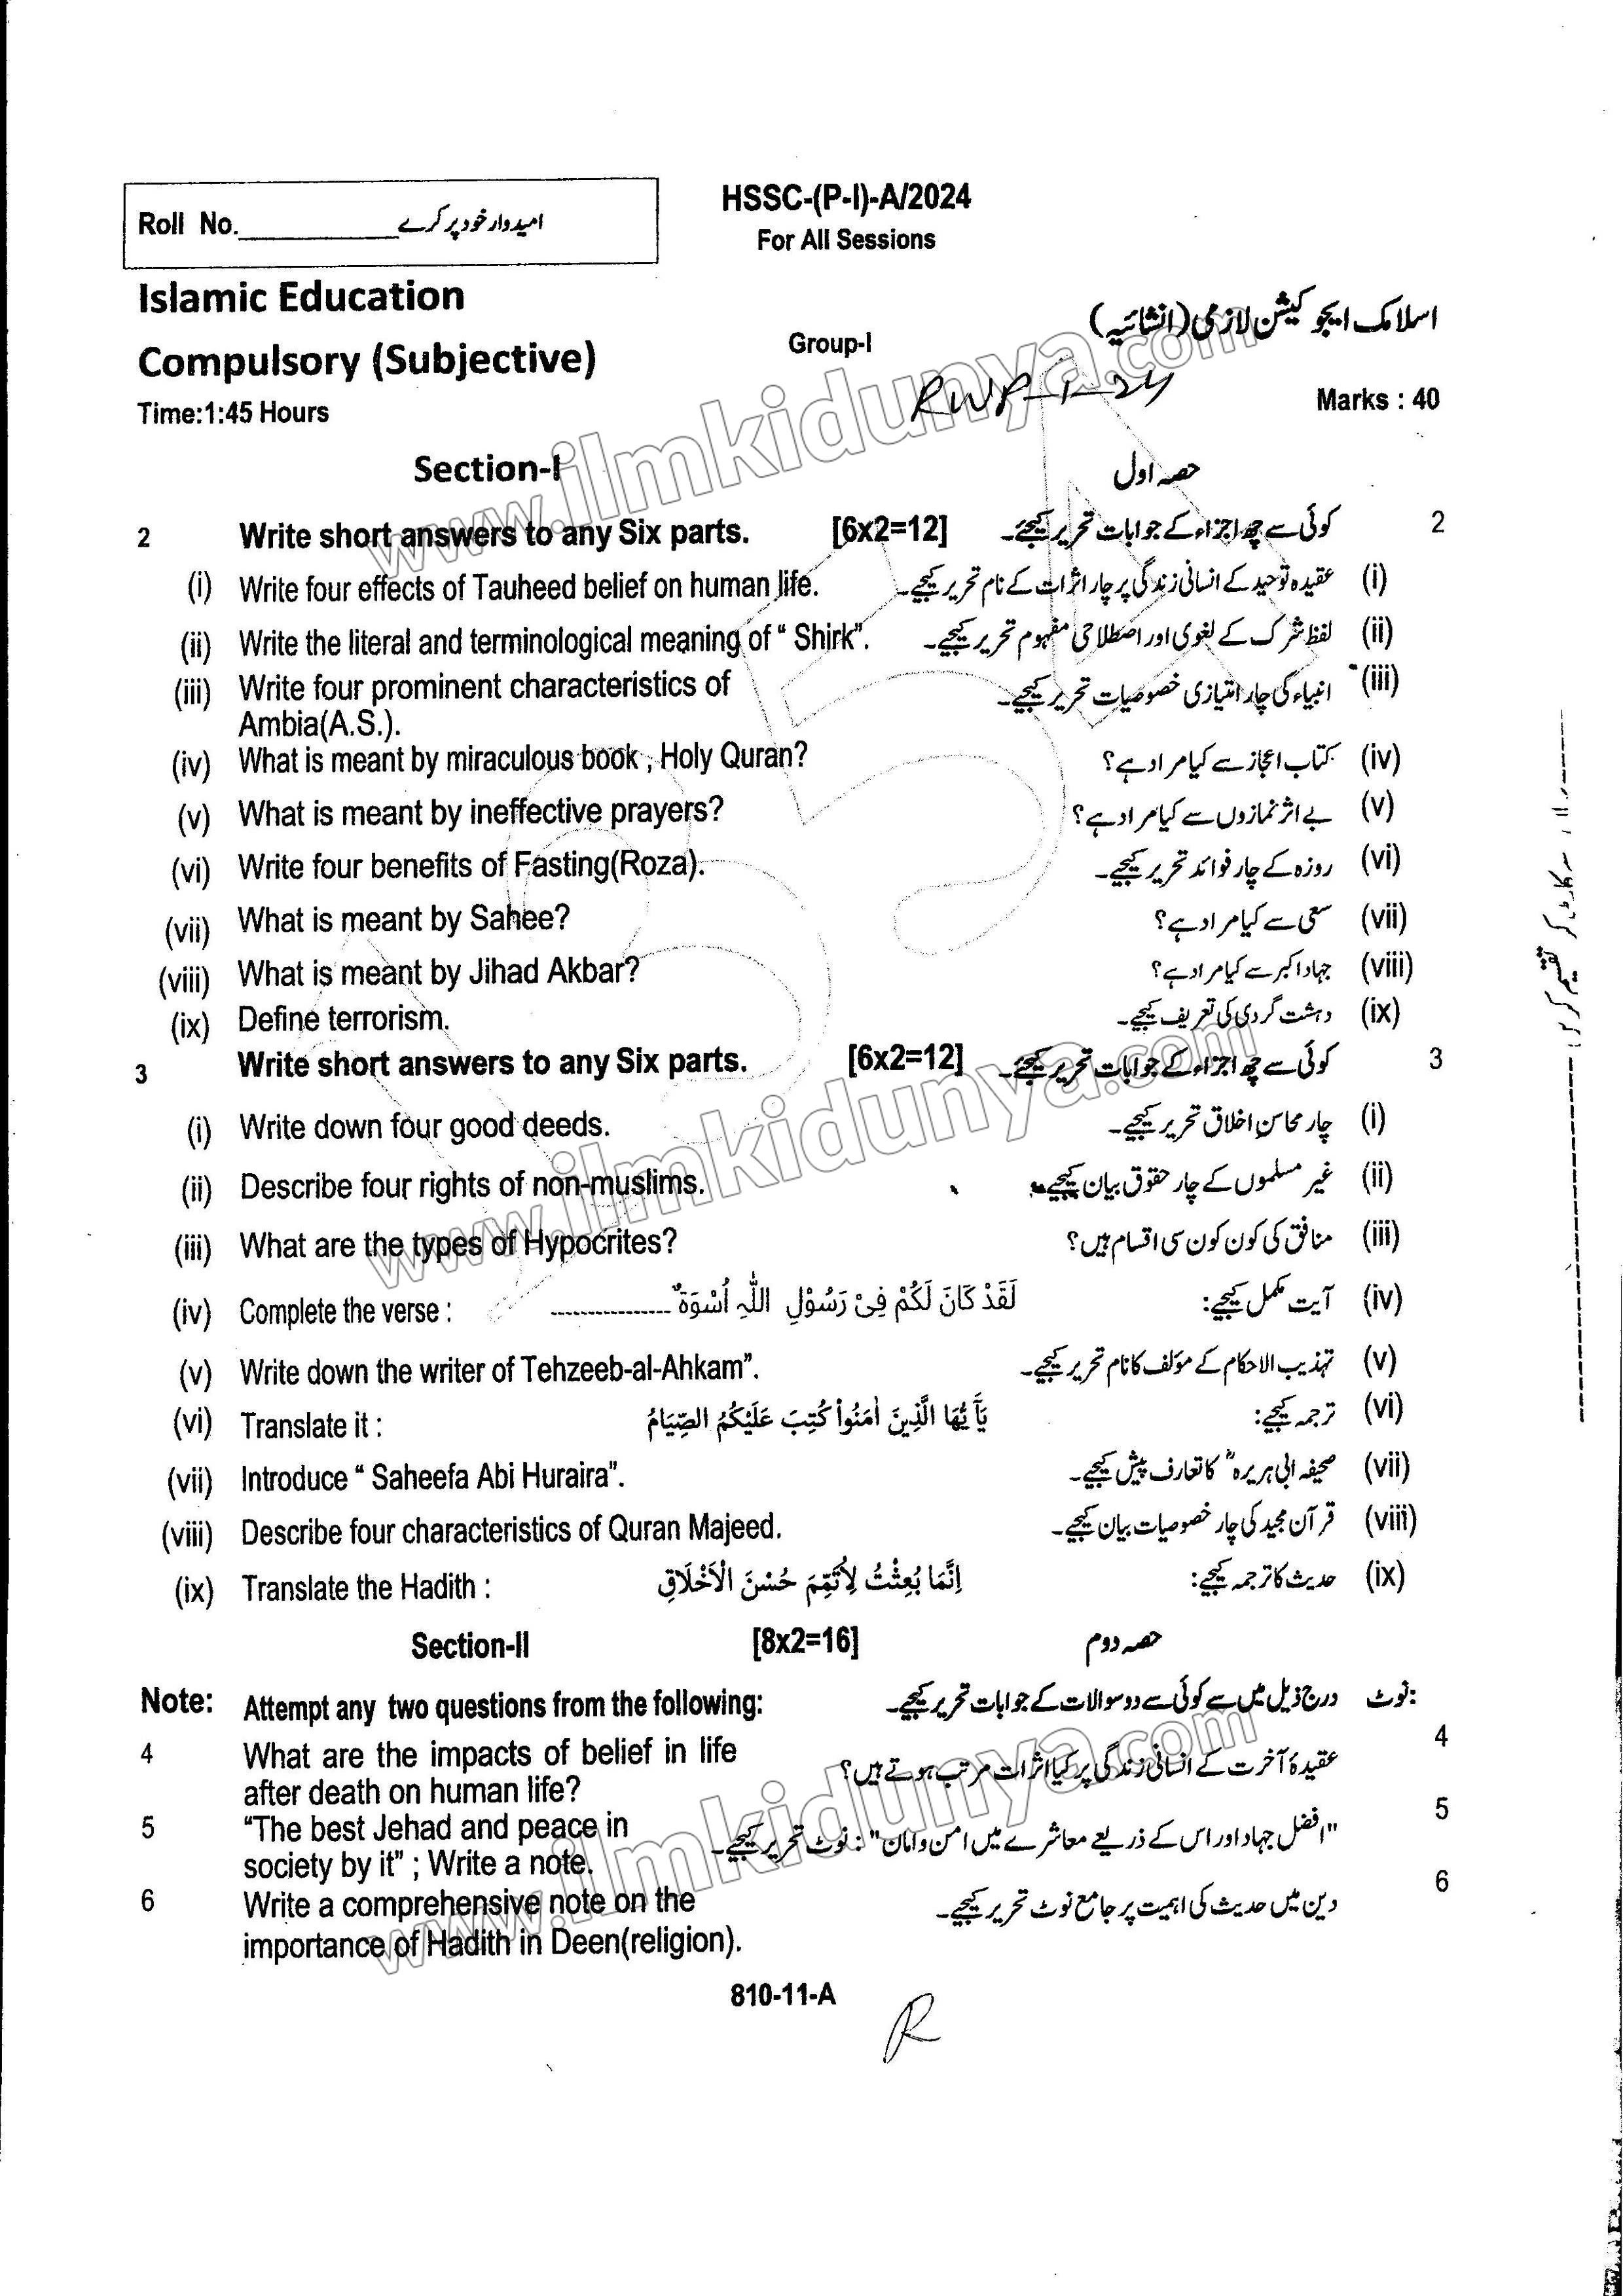 HSSC-(P-I)-A/2024
Roll No.____________ امیدوار خود پر کرے
For All Sessions
Islamic Education
اسلامک ایجوکیشن لازمی (انشائیہ)
Compulsory (Subjective)
Group-I
RWP-1-24
Time:1:45 Hours
Marks : 40
Section-I حصہ اول
2 Write short answers to any Six parts. [6x2=12] کوئی سے چھ اجزاء کے جوابات تحریر کیجئے۔ 2
(i) Write four effects of Tauheed belief on human life. عقیدہ توحید کے انسانی زندگی پر چار اثرات کے نام تحریر کیجیے۔ (i)
(ii) Write the literal and terminological meaning of “ Shirk”. لفظ شرک کے لغوی اور اصطلاحی مفہوم تحریر کیجیے۔ (ii)
(iii) Write four prominent characteristics of انبیاء کی چار امتیازی خصوصیات تحریر کیجیے۔ (iii)
Ambia(A.S.).
(iv) What is meant by miraculous book , Holy Quran? کتاب اعجاز سے کیا مراد ہے؟ (iv)
(v) What is meant by ineffective prayers? بے اثر نمازوں سے کیا مراد ہے؟ (v)
(vi) Write four benefits of Fasting(Roza). روزہ کے چار فوائد تحریر کیجیے۔ (vi)
(vii) What is meant by Sahee? سعی سے کیا مراد ہے؟ (vii)
(viii) What is meant by Jihad Akbar? جہاد اکبر سے کیا مراد ہے؟ (viii)
(ix) Define terrorism. دہشت گردی کی تعریف کیجیے۔ (ix)
3 Write short answers to any Six parts. [6x2=12] کوئی سے چھ اجزاء کے جوابات تحریر کیجئے۔ 3
(i) Write down four good deeds. چار محاسنِ اخلاق تحریر کیجیے۔ (i)
(ii) Describe four rights of non-muslims. غیر مسلموں کے چار حقوق بیان کیجیے۔ (ii)
(iii) What are the types of Hypocrites? منافق کی کون کون سی اقسام ہیں؟ (iii)
(iv) Complete the verse : لَقَدْ كَانَ لَكُمْ فِىْ رَسُوْلِ اللّٰهِ اُسْوَةٌ ----------------- آیت مکمل کیجیے: (iv)
(v) Write down the writer of Tehzeeb-al-Ahkam”. تہذیب الاحکام کے مؤلف کا نام تحریر کیجیے۔ (v)
(vi) Translate it : يَآَيُّهَا الَّذِينَ اٰمَنُواْ كُتِبَ عَلَيْكُمُ الصِّيَامُ ترجمہ کیجیے: (vi)
(vii) Introduce “ Saheefa Abi Huraira”. صحیفہ ابی ہریرہؓ کا تعارف پیش کیجیے۔ (vii)
(viii) Describe four characteristics of Quran Majeed. قرآن مجید کی چار خصوصیات بیان کیجیے۔ (viii)
(ix) Translate the Hadith : اِنَّمَا بُعِثْتُ لِاُتَمِّمَ حُسْنَ الْاَخْلَاقِ حدیث کا ترجمہ کیجیے: (ix)
Section-II [8x2=16] حصہ دوم
Note: Attempt any two questions from the following: درج ذیل میں سے کوئی سے دو سوالات کے جوابات تحریر کیجیے۔ نوٹ:
4 What are the impacts of belief in life عقیدۂ آخرت کے انسانی زندگی پر کیا اثرات مرتب ہوتے ہیں؟ 4
after death on human life?
5 “The best Jehad and peace in "افضل جہاد اور اس کے ذریعے معاشرے میں امن و امان" : نوٹ تحریر کیجیے۔ 5
society by it” ; Write a note.
6 Write a comprehensive note on the دین میں حدیث کی اہمیت پر جامع نوٹ تحریر کیجیے۔ 6
importance of Hadith in Deen(religion).
810-11-A
R
www.ilmkidunya.com
www.ilmkidunya.com
www.ilmkidunya.com